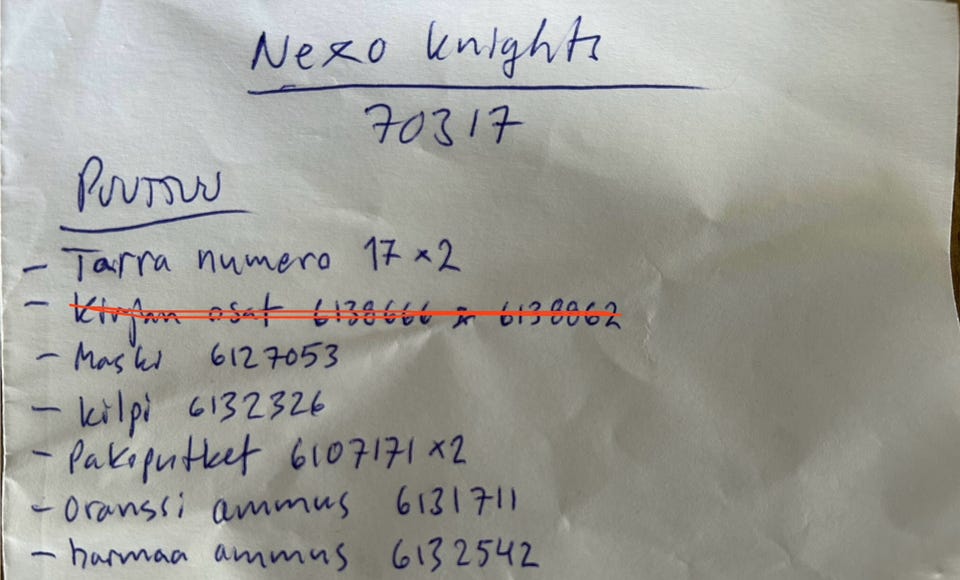 Nexo knights
70317
Puuttuu
- Tarra numero 17 x 2
- Kirjan osat 6138666 x 6138862
- Maski 6127053
- kilpi 6132326
- Pakoputket 6107171 x 2
- Oranssi ammus 6131711
- harmaa ammus 6132542